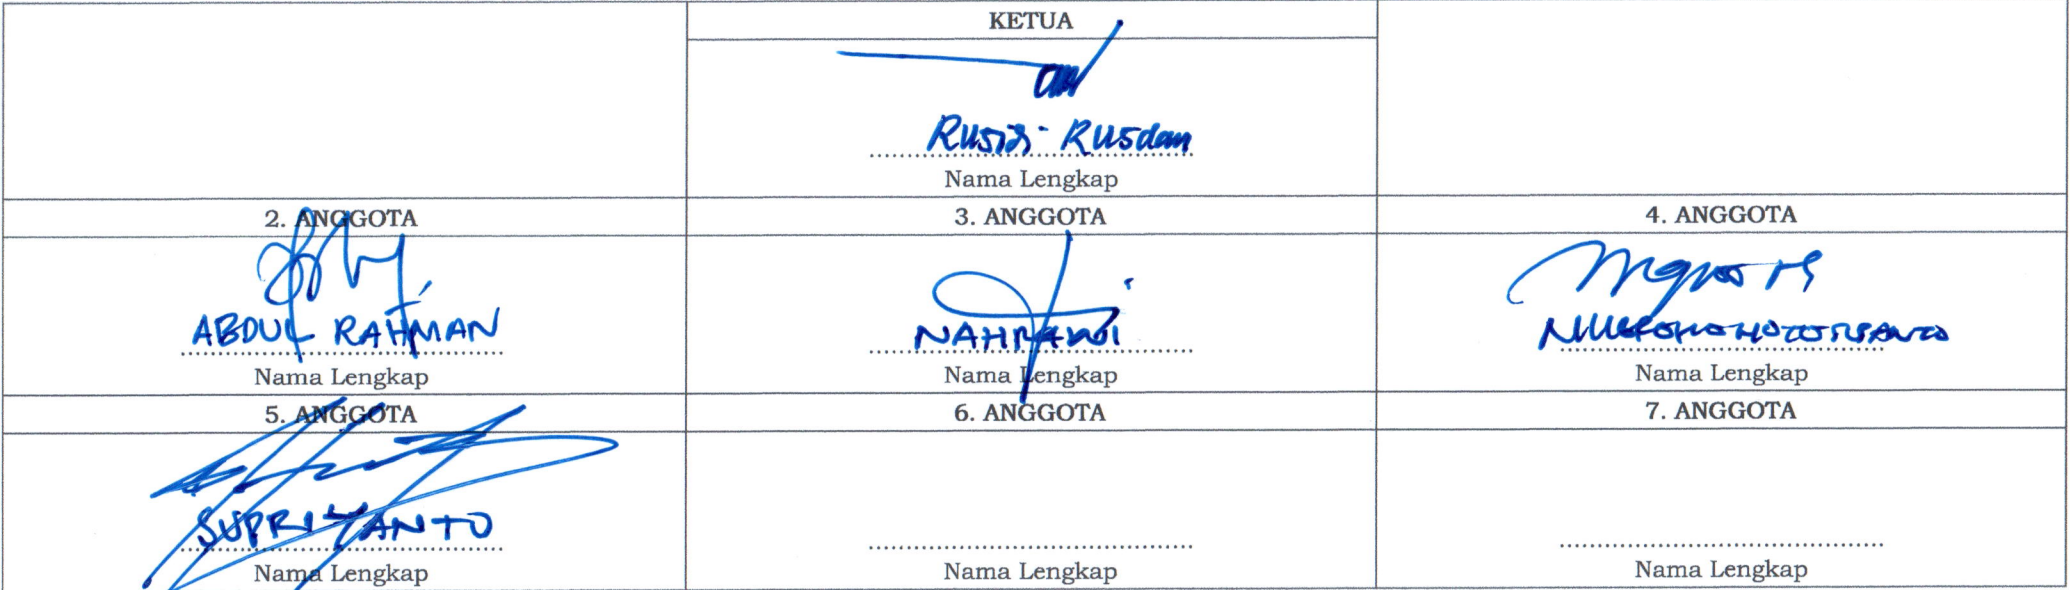 KETUA
Rusdi Rusdan
Nama Lengkap
2. ANGGOTA
3. ANGGOTA
4. ANGGOTA
ABDUL RAHMAN
NAHRAWI
Nama Lengkap
Nama Lengkap
Nama Lengkap
5. ANGGOTA
6. ANGGOTA
7. ANGGOTA
SUPRIYANTO
Nama Lengkap
Nama Lengkap
Nama Lengkap